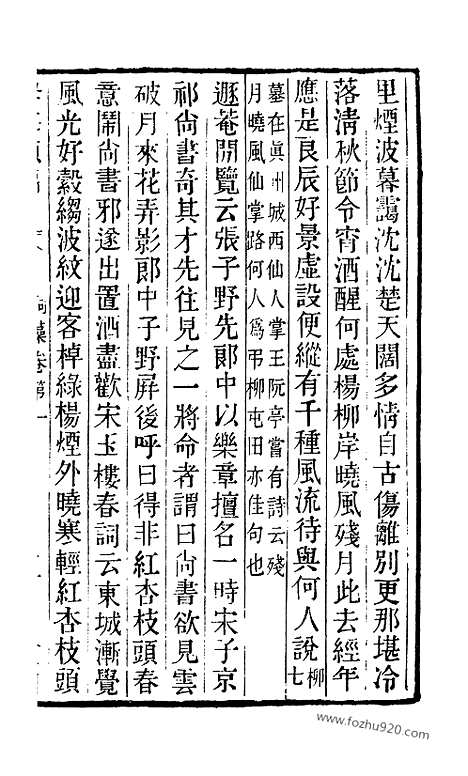 里煙波暮靄沈沈楚天闊多情自古傷離別更那堪冷
落清秋節今宵酒醒何處楊柳岸曉風殘月此去經年
應是良辰好景虛設便縱有千種風流待與何人說柳
七
墓在眞州城西仙人掌王阮亭嘗有詩云殘
月曉風仙掌路何人爲弔柳屯田亦佳句也
遯菴閒覽云張子野先郎中以樂章擅名一時宋子京
祁尙書奇其才先往見之一將命者謂曰尙書欲見雲
破月來花弄影郎中子野屏後呼曰得非紅杏枝頭春
意鬧尙書邪遂出置酒盡歡宋玉樓春詞云東城漸覺
風光好縠縐波紋迎客棹綠楊煙外曉寒輕紅杏枝頭
卷第一
www.fozhu920.com